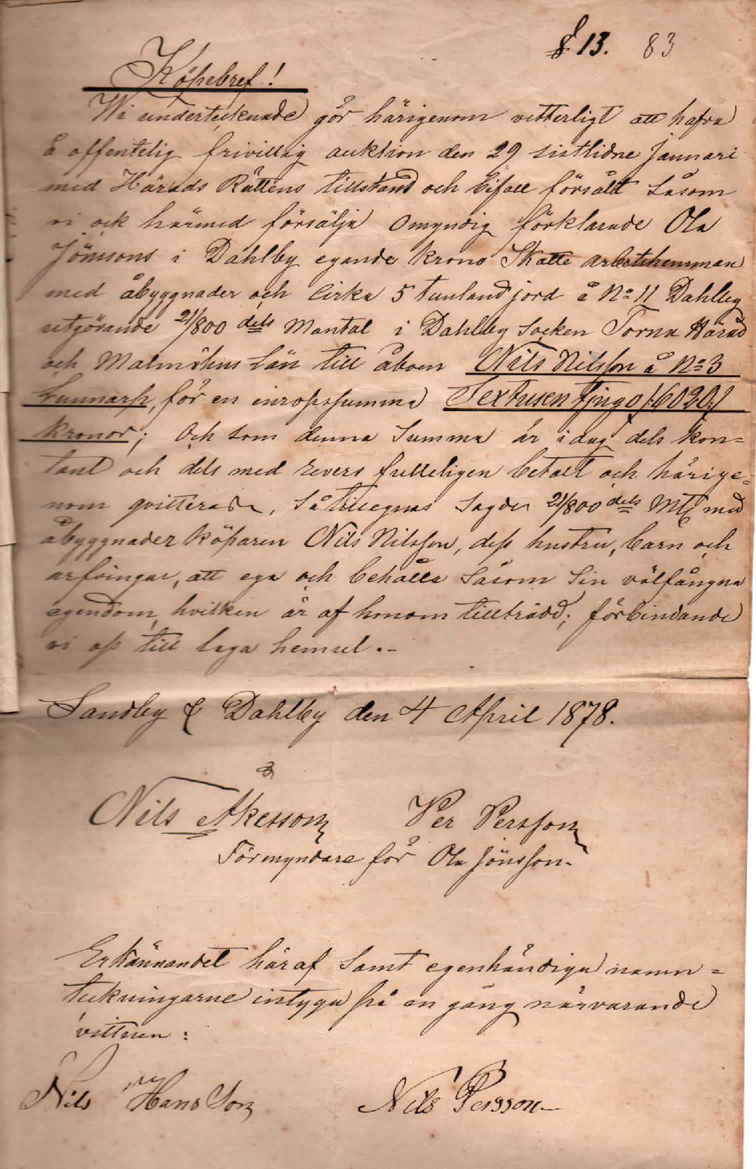 § 13. 83
Köpebref!
Wi undertecknade gör härigenom vetterligt att hafva
å offentelig frivillig auktion den 29 sistlidne Januari
med Härads Rättens tillstånd och bifall försålt såsom
vi ock härmed försälja omyndig förklarade Ola
Jönssons i Dahlby egande krono Skatte arbetshemman
med åbyggnader och cirka 5 tunland jord å No 11 Dahlby
utgörande 21/800 dels Mantal i Dahlby Socken Torna Härad
och Malmöhus Län till åboen Nils Nilsson å No 3
Gunnarp, för en inropssumma Sextusen tjugo /6020/
Kronor; Och som denna Summa är idag dels kon=
tant och dels med revers fulleligen betalt och härige=
nom qvitteras, så tillegnas Sagde 21/800 dels Mtl med
åbyggnader köparen Nils Nilsson, dess hustru, barn och
arfvingar, att ega och behålla såsom sin välfångna
egendom, hvilken är af honom tillträdd; förbindande
vi oss till laga hemul.-
Sandby & Dahlby den 4 April 1878.
Nils Åkesson Per Persson
Förmyndare för Ola Jönsson.
Erkännandet häraf samt egenhändiga namn=
teckningarne intyga på en gång närvarande
vittnen:
Nils Hansson Nils Persson